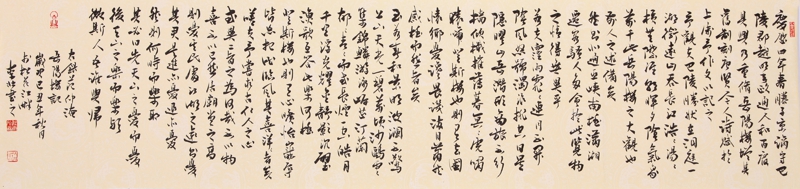 慶曆四年春滕子京謫守巴
陵郡越明年政通人和百廢
具興乃重修岳陽樓增其
舊制刻唐賢今人詩賦於
上屬予作文以記之
予觀夫巴陵勝狀在洞庭一
湖銜遠山吞長江浩浩湯湯
橫無際涯朝暉夕陰氣象
萬千此岳陽樓之大觀也
前人之述備矣
然則北通巫峽南極瀟湘
遷客騷人多會於此覽物
之情得無異乎
若夫霪雨霏霏連月不開
陰風怒號濁浪排空日星
隱曜山岳潛形商旅不行
檣傾楫摧薄暮冥冥虎嘯
猿啼登斯樓也則有去國
懷鄉憂讒畏譏滿目蕭然
感極而悲者矣
至若春和景明波瀾不驚
上下天光一碧萬頃沙鷗翔
集錦鱗游泳岸芷汀蘭
郁郁青青而或長煙一空皓月
千里浮光躍金靜影沉璧
漁歌互答此樂何極
登斯樓也則有心曠神怡寵辱
皆忘把酒臨風其喜洋洋者矣
嗟夫予嘗求古仁人之心
或異二者之為何哉不以物
喜不以己悲居廟堂之高
則憂其民處江湖之遠則憂
其君是進亦憂退亦憂
然則何時而樂耶
其必曰先天下之憂而憂
後天下之樂而樂歟
噫微斯人吾誰與歸
右錄范仲淹
岳陽樓記
歲次己丑年秋月